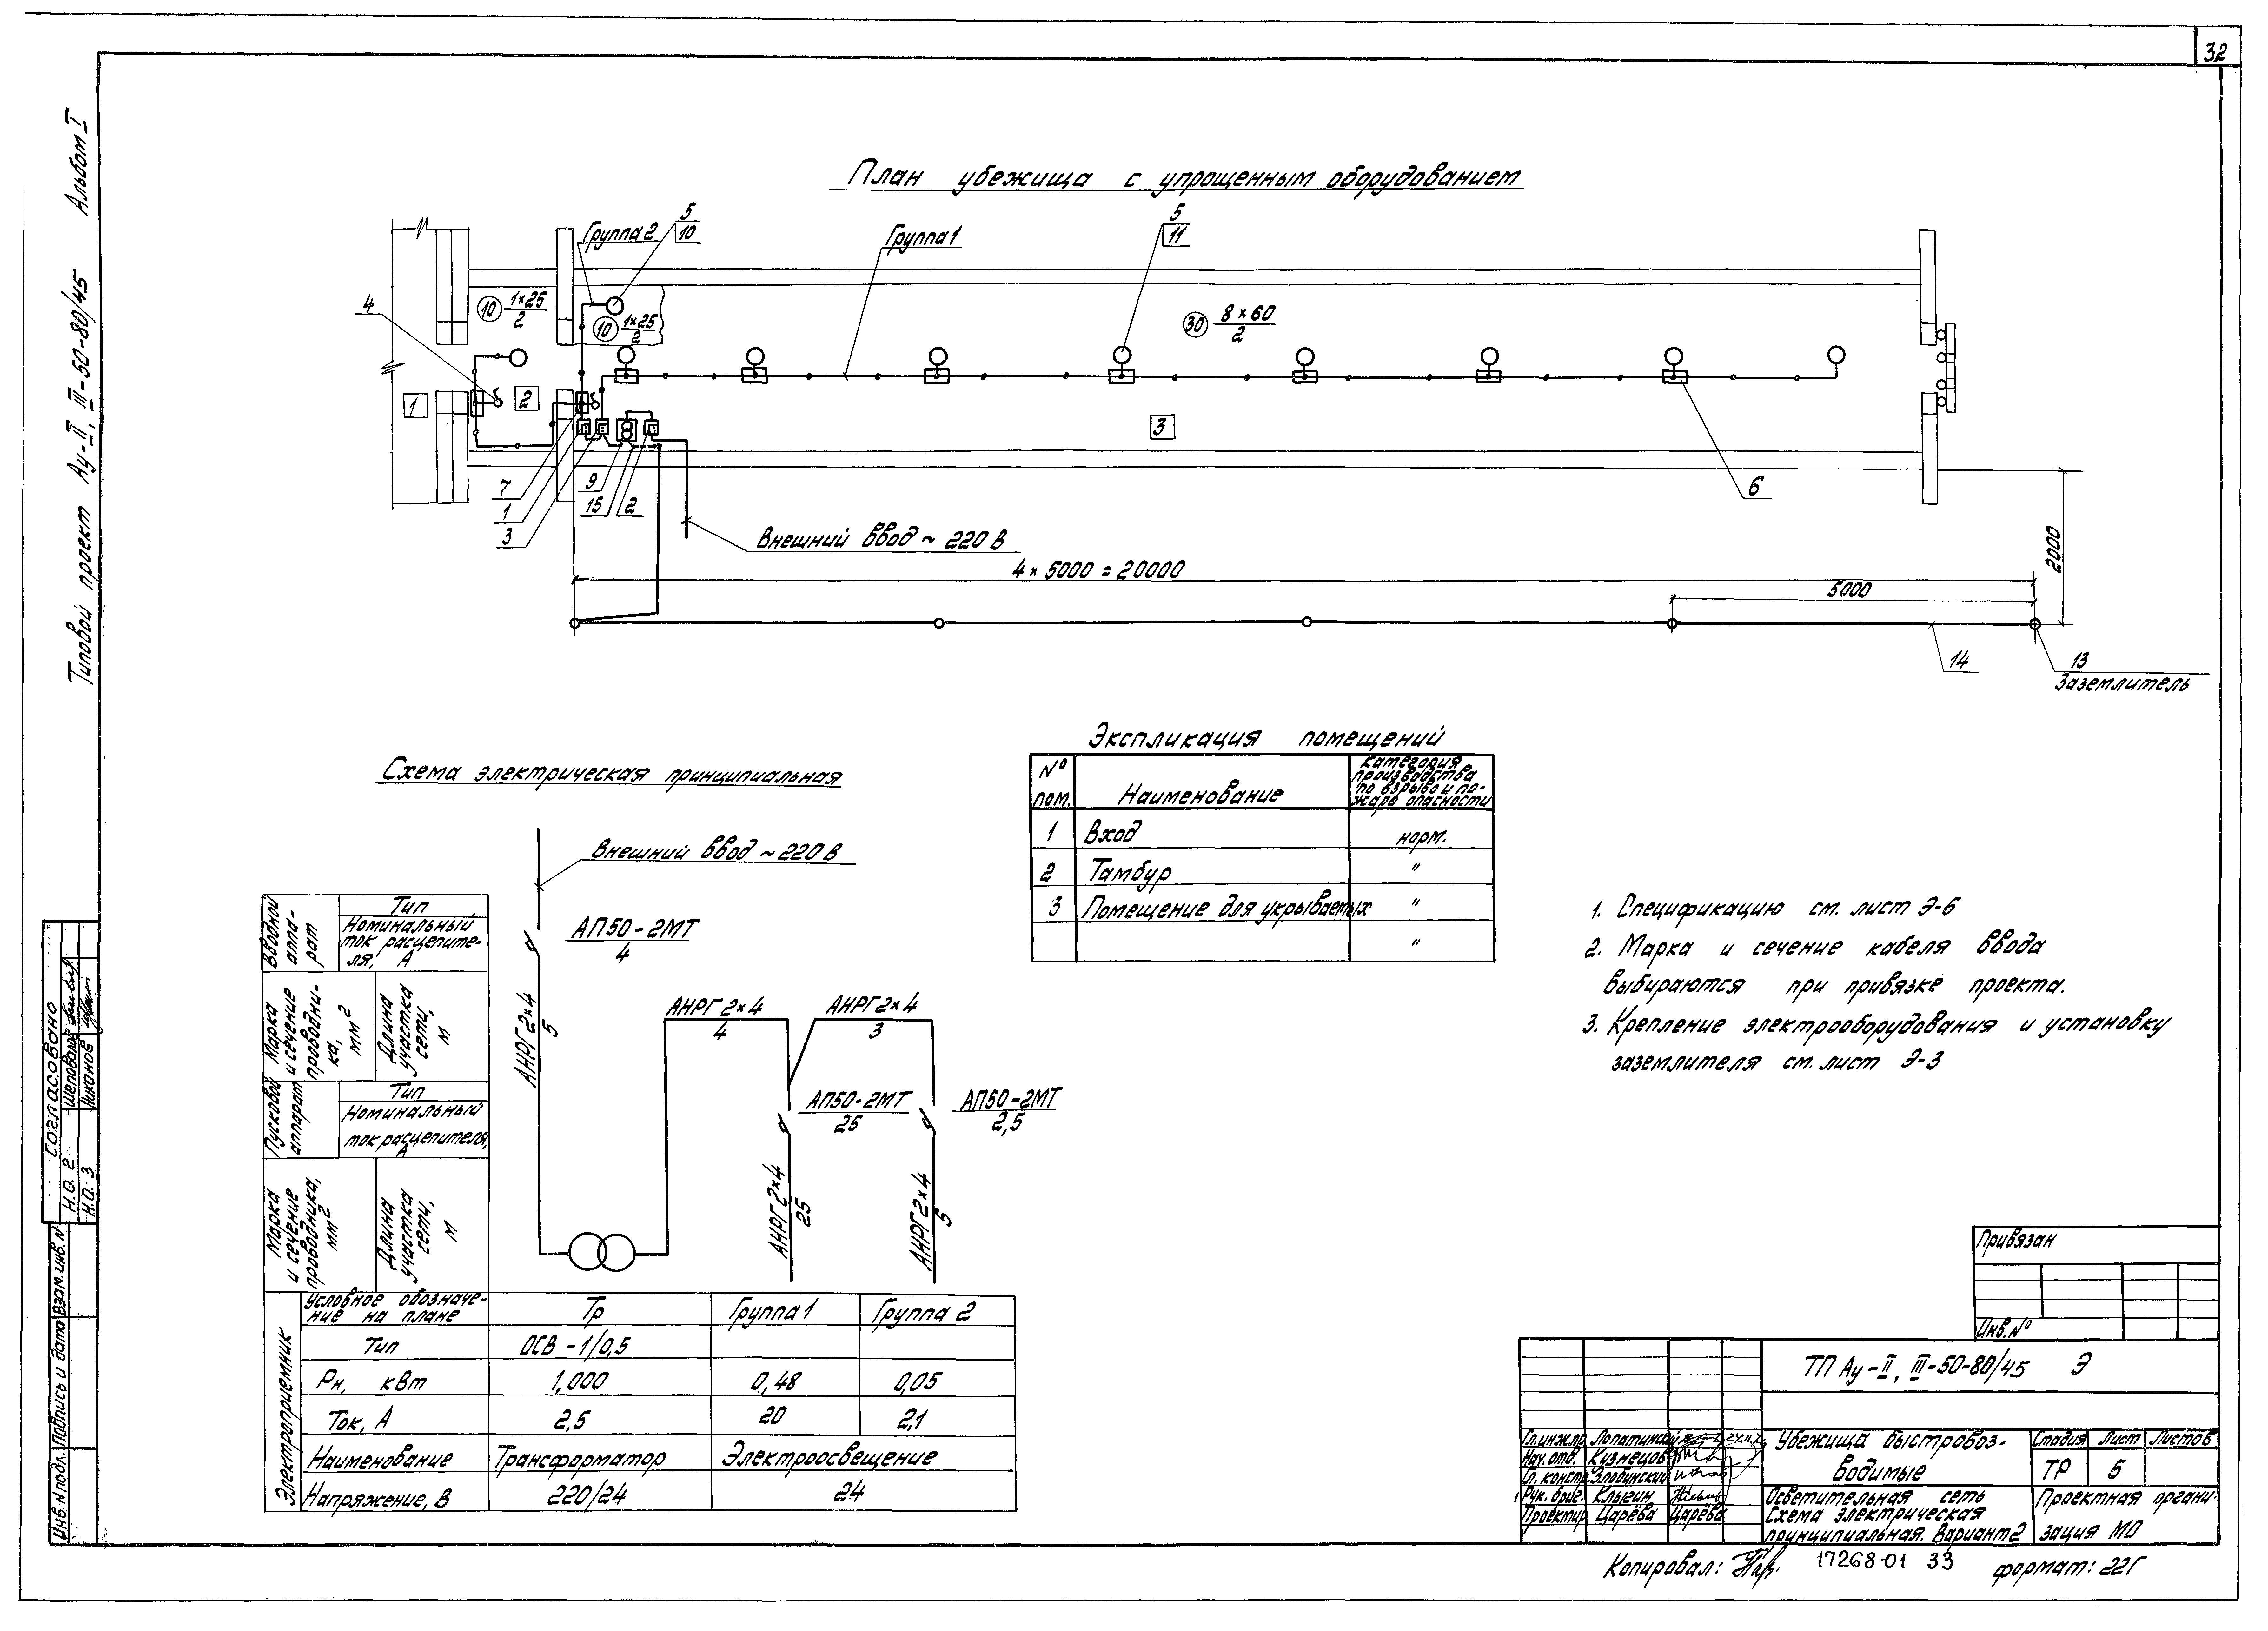 32
Альбом I
Типовой проект Ау-II, III-50-80/45
План убежища с упрощенным оборудованием
Группа 2
5
10
Группа 1
5
11
4
10 1×25
2
10 1×25
2
30 8×60
2
1
2
3
7
1
3
9
15
2
6
Внешний ввод ~ 220 В
4 × 5000 = 20000
5000
2000
14
13
Заземлитель
Схема электрическая принципиальная
Внешний ввод ~ 220 В
АП50-2МТ
4
АНРГ 2×4
5
АНРГ 2×4
4
АНРГ 2×4
3
АП50-2МТ
25
АП50-2МТ
2,5
АНРГ 2×4
25
АНРГ 2×4
5
Вводной
аппа-
рат
Тип
Номинальный
ток расцепите-
ля, А
Марка
и сечение
проводни-
ка,
мм2
Длина
участка
сети,
м
Пусковой
аппарат
Тип
Номинальный
ток расцепителя,
А
Марка
и сечение
проводника,
мм2
Длина
участка
сети,
м
Электроприемник
Условное обозначе-
ние на плане
Тр
Группа 1
Группа 2
Тип
ОСВ-1/0,5
Рн, кВт
1,000
0,48
0,05
Ток, А
2,5
20
2,1
Наименование
Трансформатор
Электроосвещение
Напряжение, В
220/24
24
Экспликация помещений
№
пом.
Наименование
Категория
производства
по взрыво и по-
жаро опасности
1 Вход норм.
2 Тамбур "
3 Помещение для укрываемых "
"
1. Спецификацию см. лист Э-6
2. Марка и сечение кабеля ввода
выбираются при привязке проекта.
3. Крепление электрооборудования и установку
заземлителя см. лист Э-3
Согласовано
Н.О. 2 Шеповалов
Н.О. 3 Никонов
Инв. N подл.
Подпись и дата
Взам. инв. N
Привязан
Инв. №
ТП Ау-II, III-50-80/45 Э
Гл. инж. пр. Лопатинский
Нач. отд. Кузнецов
Гл. констр. Злобинский
Рук. бриг. Клыгин
Проектир. Царёва Царёва
Убежища быстровоз-
водимые
Стадия Лист Листов
ТР 5
Осветительная сеть
Схема электрическая
принципиальная. Вариант 2
Проектная органи-
зация МО
Копировал:
17268-01 33
формат: 22Г